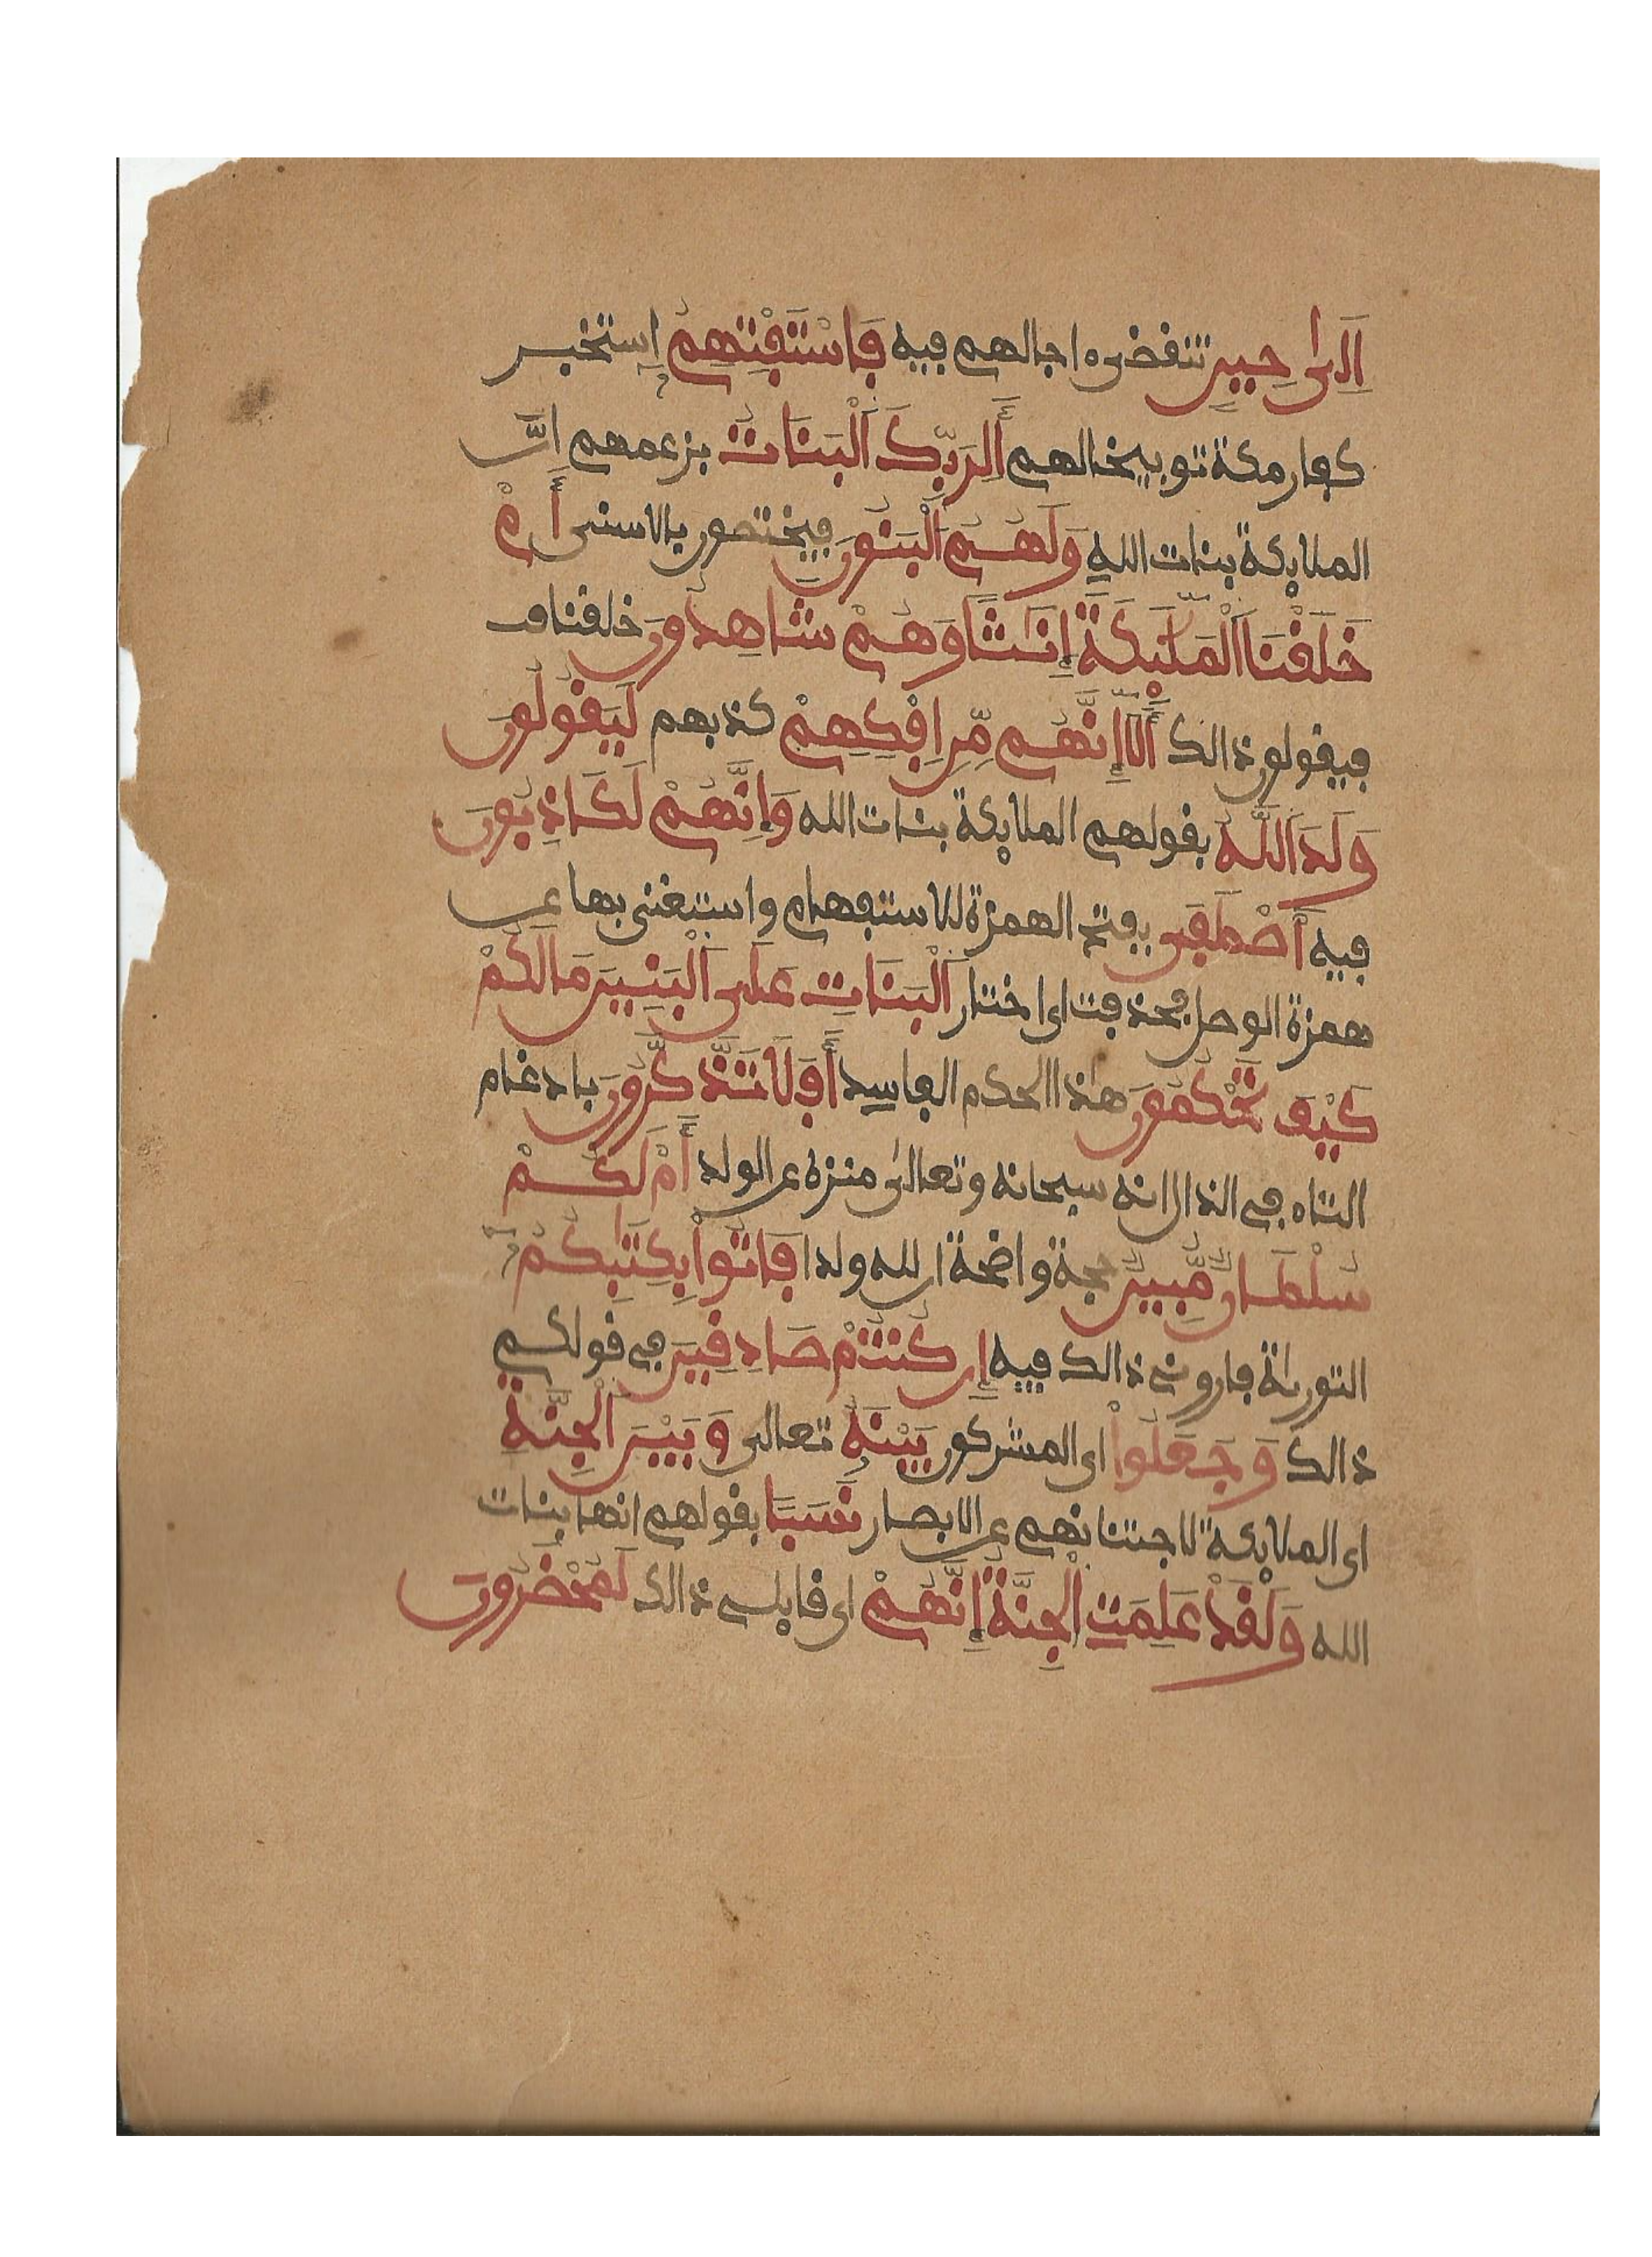 إِلَىٰ حِينٍ تنقضى ءاجالهم فيه فَاسْتَفْتِهِمُ إستخبر
كفار مكة توبيخا لهم أَلِرَبِّكَ اَلْبَنَاتُ بزعمهم انَّ
الملايكة بنات اللهِ وَلَهُمُ اَلْبَنُونَ فيختصون بالاسنى أَمْ
خَلَقْنَا اَلْمَلَٰٓئِكَةَ إِنَٰثًا وَهُمْ شَاهِدُونَ خلقنا
فيقولون ذالك أَلَآ إِنَّهُم مِّنِ اِفْكِهِمْ كذبهم لَيَقُولُونَ
وَلَدَ اَللَّهُ بقولهم الملايكة بنات الله وَإِنَّهُمْ لَكَاذِبُونَ
فيه أَصْطَفَى بفتح الهمزة للاستفهام واستغنى بها عن
همزة الوصل فحذفت اى اختار اَلْبَنَاتِ عَلَى اَلْبَنِينَ مَا لَكُمْ
كَيْفَ تَحْكُمُونَ هٰذا الحكم الفاسد أَفَلَا تَذَّكَّرُونَ بادغام
التاء فى الذال انه سبحانه وتعالىٰ منزه عن الولد أَمْ لَكُمْ
سُلْطَانٌ مُّبِينٌ حجة واضحة ان لله ولدا فَاتُوا بِكِتَٰبِكُمْ
التورىٰة فارونى ذالك فيه إِن كُنتُمْ صَادِقِينَ فى قولكم
ذالك وَجَعَلُوا اى المشركون بَيْنَهُ تعالى وَبَيْنَ اَلْجِنَّةِ
اى الملايكة لاجتنانهم عن الابصار نَسَبًا بقولهم انها بنات
الله وَلَقَدْ عَلِمَتِ اِلْجِنَّةُ إِنَّهُمْ اى قايلى ذالك لَمُحْضَرُونَ